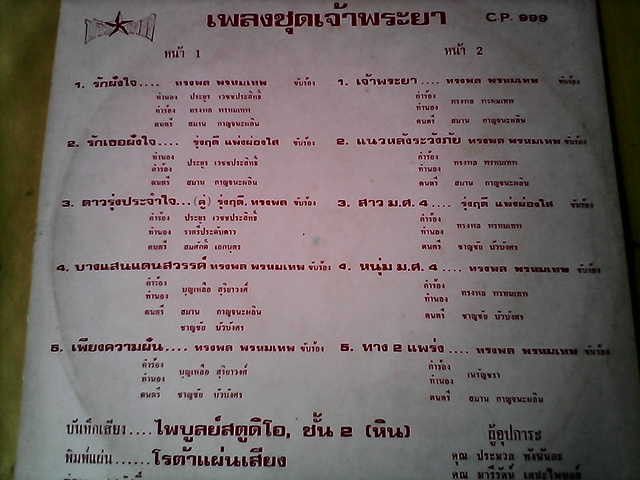 เพลงชุดเจ้าพระยา
C.P. 999
หน้า 1
1. รักฝังใจ.... ทรงพล พรหมเทพ ขับร้อง
ทำนอง ประยูร เวชชประสิทธิ์
คำร้อง ทรงพล พรหมเทพ
ดนตรี สมาน กาญจนะผลิน
2. รักเธอฝังใจ.... รุ่งฤดี แพ่งผ่องใส ขับร้อง
ทำนอง
คำร้อง ประยูร เวชชประสิทธิ์
ดนตรี สมาน กาญจนะผลิน
3. ดาวรุ่งประจำใจ...(คู่) รุ่งฤดี, ทรงพล ขับร้อง
คำร้อง ประยูร เวชชประสิทธิ์
ทำนอง ราตรีประดับดาว
ดนตรี สมศักดิ์ เอกบุตร
4. บางแสนแดนสวรรค์ ทรงพล พรหมเทพ ขับร้อง
คำร้อง
ทำนอง บุญเหลือ สุริยาวงศ์
ดนตรี สมาน กาญจนะผลิน
ชาญชัย บัวบังศร
5. เพียงความฝัน.... ทรงพล พรหมเทพ ขับร้อง
คำร้อง
ทำนอง บุญเหลือ สุริยาวงศ์
ดนตรี ชาญชัย บัวบังศร
หน้า 2
1. เจ้าพระยา.... ทรงพล พรหมเทพ ขับร้อง
คำร้อง
ทำนอง ทรงพล พรหมเทพ
ดนตรี สมาน กาญจนะผลิน
2. แนวหลังระวังภัย ทรงพล พรหมเทพ ขับร้อง
คำร้อง
ทำนอง ทรงพล พรหมเทพ
ดนตรี สมาน กาญจนะผลิน
3. สาว ม.ศ. 4.... รุ่งฤดี แพ่งผ่องใส ขับร้อง
คำร้อง
ทำนอง ทรงพล พรหมเทพ
ดนตรี ชาญชัย บัวบังศร
4. หนุ่ม ม.ศ. 4.... ทรงพล พรหมเทพ ขับร้อง
คำร้อง
ทำนอง ทรงพล พรหมเทพ
ดนตรี ชาญชัย บัวบังศร
5. ทาง 2 แพร่ง.... ทรงพล พรหมเทพ ขับร้อง
คำร้อง
ทำนอง เนรัญชรา
ดนตรี สมาน กาญจนะผลิน
บันทึกเสียง.... ไพบูลย์สตูดิโอ, ชั้น 2 (หิน)
พิมพ์แผ่น...... โรต้าแผ่นเสียง
ผู้อุปการะ
คุณ ประมวล
คุณ